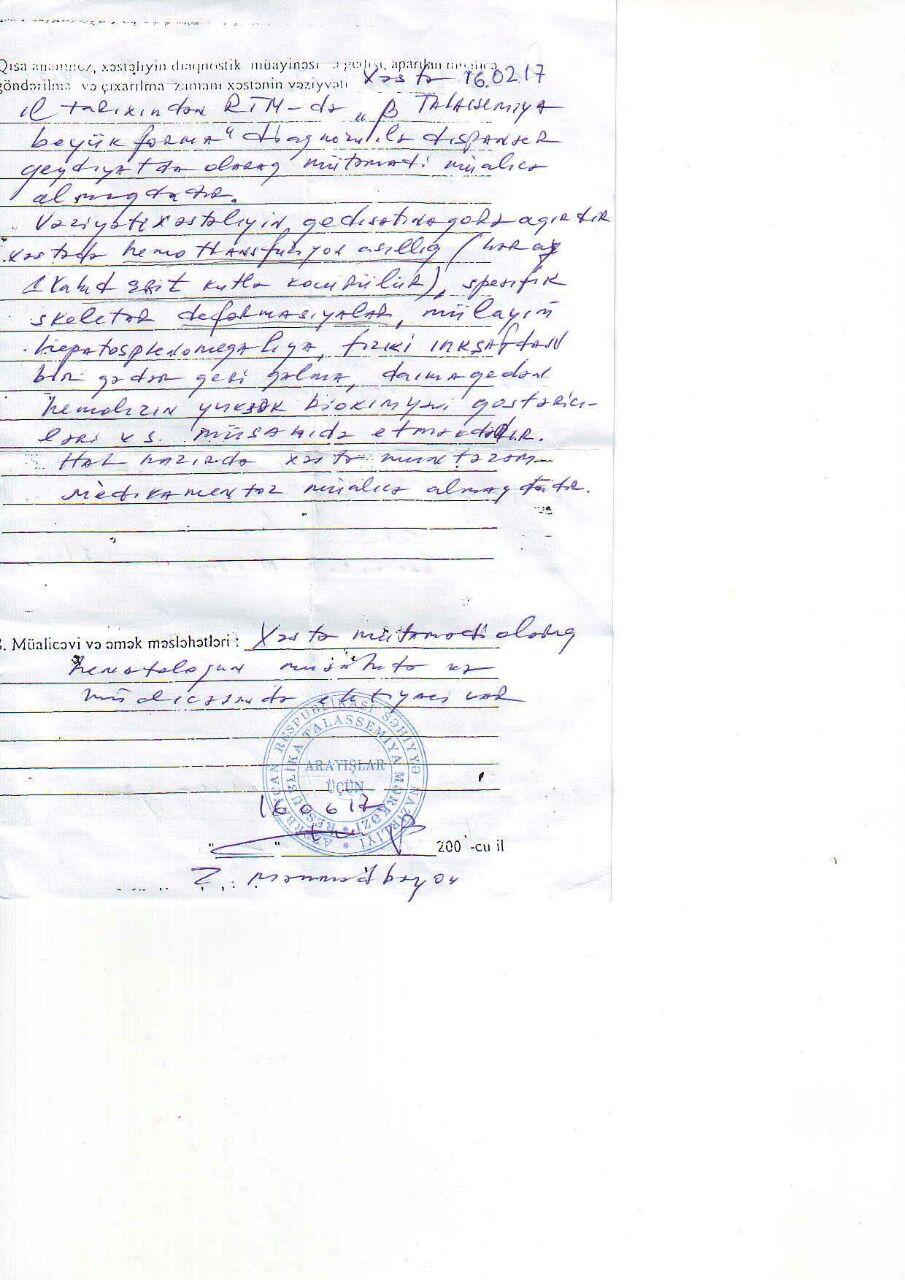 Qısa anamnez, xəstəliyin diaqnostik müayinəsi gedişi, aparılan müalicə
göndərilmə və çıxarılma zamanı xəstənin vəziyyəti Xəstə 16.02.17
il tarixindən RTM-də "β Talassemiya
böyük forma" diaqnozu ilə dispanser
qeydiyyatda olaraq mütəmadi müalicə
almaqdadır.
Vəziyyəti xəstəliyin gedişatına görə ağırdır
xəstədə hemotransfuziyon asıllıq (hər ay
1 vahid erit kütlə köçürülür), spesifik
skeletar deformasiyalar, mülayim
hepatosplenomegaliya, fiziki inkşafdan
bir qədər geri qalma, daima gedən
hemolizin yüksək biokimyəvi göstərici-
ləri və s. müşahidə etməkdədir.
Hal hazırda xəstə müntəzəm
medikamentoz müalicə almaqdadır.
8. Müalicəvi və əmək məsləhətləri : Xəstə mütəmadi olaraq
hematoloqun müşahidə və
müalicəsində ehtiyacı var
AZƏRBAYCAN RESPUBLİKASI SƏHİYYƏ NAZİRLİYİ
RESPUBLİKA TALASSEMİYA MƏRKƏZİ
ARAYIŞLAR
ÜÇÜN
16 06 17
" " 200 -cu il